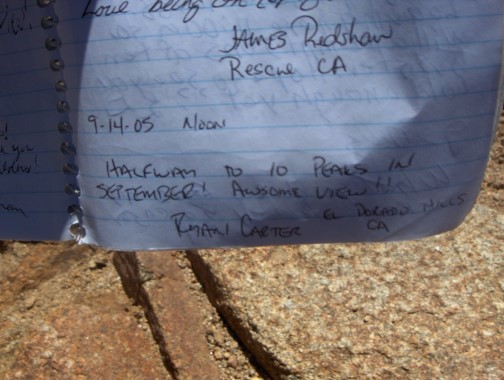 Love being on top
JAMES Redshaw
Rescue CA
9-14-05 Noon
HALFWAY TO 10 PEAKS IN
SEPTEMBER! AWSOME VIEW!!
RYAN CARTER EL DORADO HILLS
CA
you